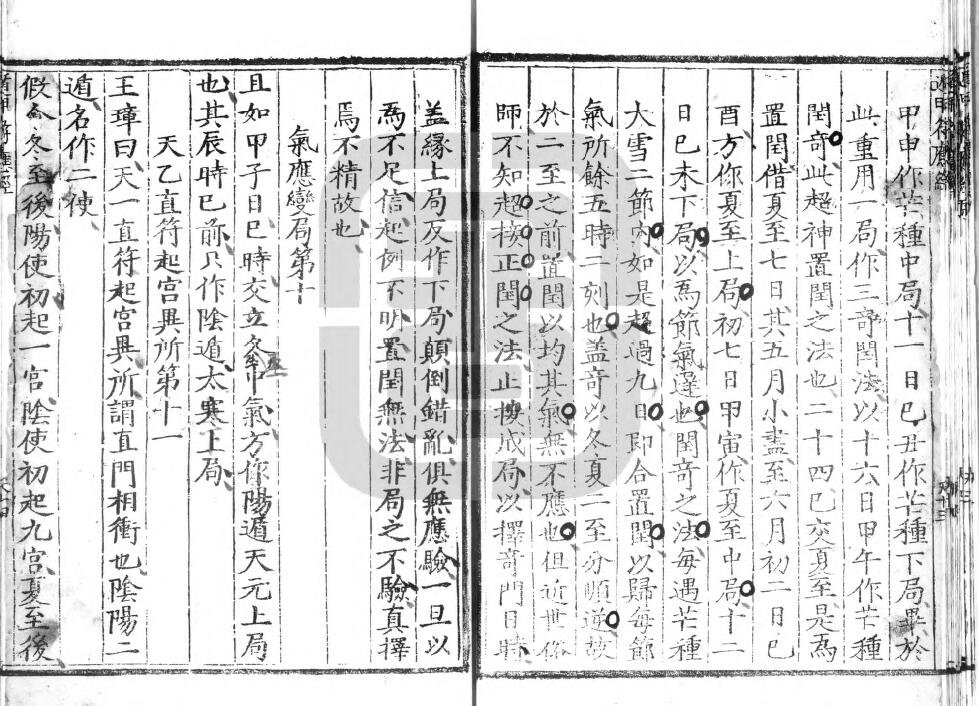 甲申作芒種中局十一日己丑作芒種下局畢於
此重用一局作三奇閏法以十六日甲午作芒種
閏奇此超神置閏之法也二十四巳交夏至是為
置閏借夏至七日其五月小盡至六月初二日己
酉方作夏至上局初七日甲寅作夏至中局十二
日己未下局以為節氣遲也閏奇之法每遇芒種
大雪二節內如是超過九日即合置閏以歸每節
氣所餘五時二刻也蓋奇以冬夏二至分順逆故
於二至之前置閏以均其氣無不應也但近世俗
師不知超接正閏之法止按成局以擇奇門日時
蓋緣上局反作下局顛倒錯亂俱無應驗一旦以
為不足信起例不明置閏無法非局之不驗真擇
焉不精故也
氣應變局第十
且如甲子日巳時交立冬中氣方作陽遁天元上局
也其辰時已前只作陰遁太寒上局
天乙直符起宮異所第十一
王璋曰天一直符起宮異所謂直門相衝也陰陽二
遁名作二使
假令冬至後陽使初起一宮陰使初起九宮夏至後